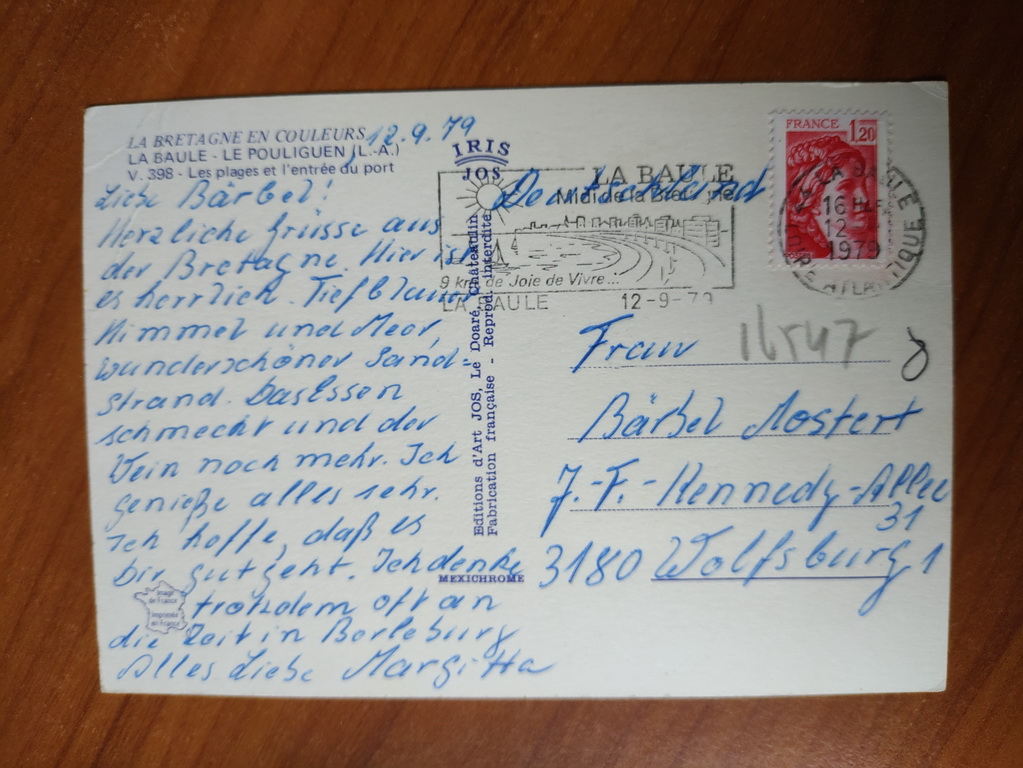 LA BRETAGNE EN COULEURS
LA BAULE - LE POULIGUEN (L.-A.)
V. 398 - Les plages et l'entrée du port
12.9.79
Liebe Bärbel!
Herzliche Grüsse aus
der Bretagne. Hier ist
es herrlich. Tiefblauer
Himmel und Meer,
wunderschöner Sand=
strand. Das Essen
schmeckt und der
Wein noch mehr. Ich
genieße alles sehr.
Ich hoffe, daß es
Dir gut geht. Ich denke
trotzdem oft an
die Zeit in Berleburg
Alles Liebe Margitta
Image de France
Imprimé en France
IRIS
JOS
Editions d'Art JOS, Le Doaré, Châteaulin
Fabrication française - Reprod. interdite
MEXICHROME
LA BAULE
Midi de la Bretagne
9 km de Joie de Vivre...
LA BAULE 12-9-79
FRANCE 1,20
16 H
12
1979
LOIRE ATLANTIQUE
Deutschland
16547
Frau
Bärbel Mostert
J.-F.-Kennedy-Allee
31
3180 Wolfsburg 1